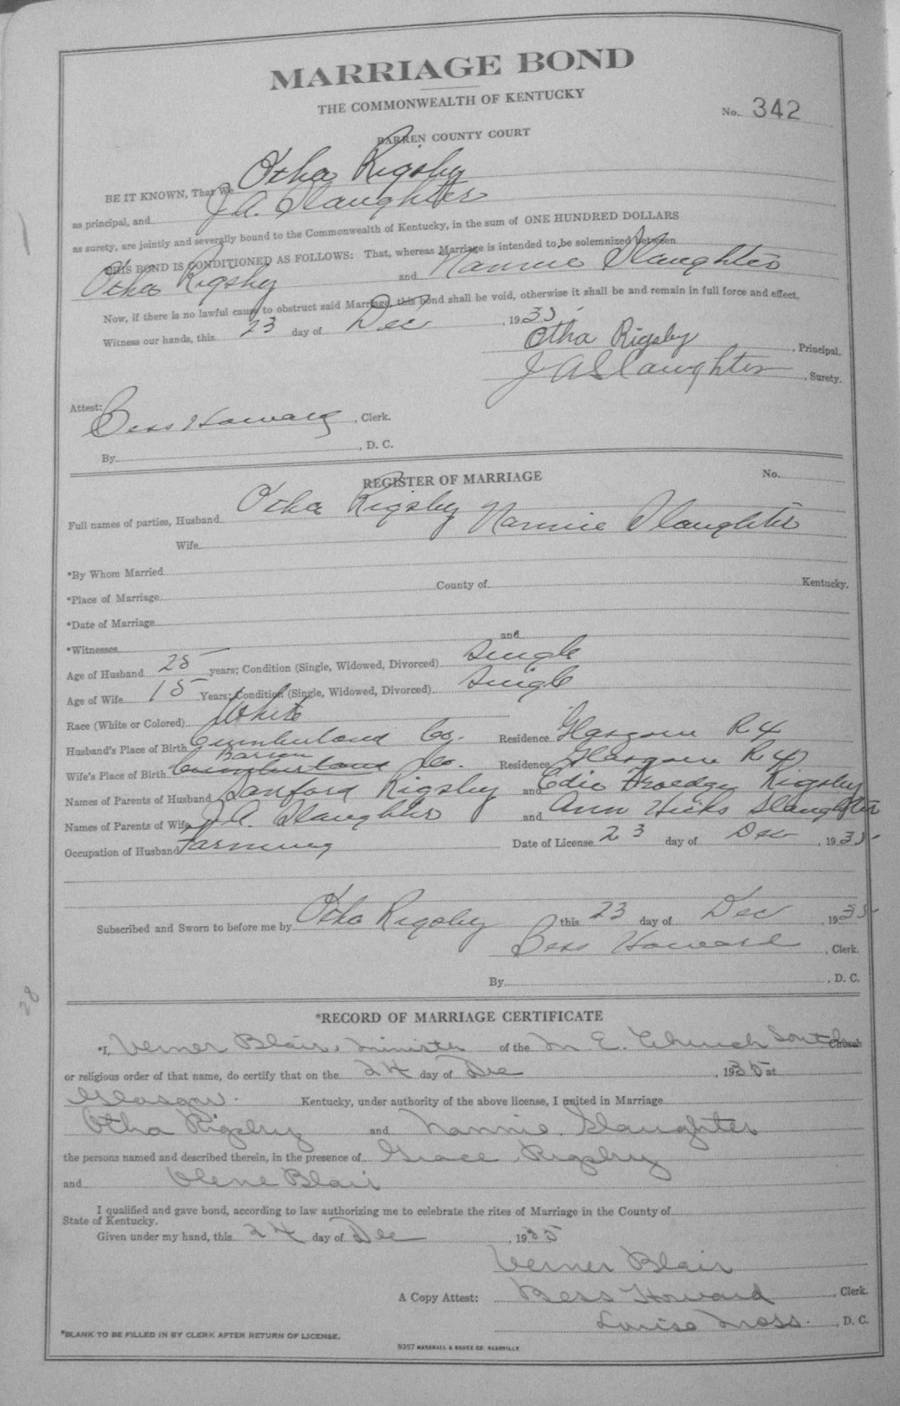 MARRIAGE BOND
THE COMMONWEALTH OF KENTUCKY
No. 342
BARREN COUNTY COURT
BE IT KNOWN, That we Otha Rigsby
as principal, and J. A. Slaughter
as surety, are jointly and severally bound to the Commonwealth of Kentucky, in the sum of ONE HUNDRED DOLLARS
THIS BOND IS CONDITIONED AS FOLLOWS: That, whereas Marriage is intended to be solemnized between
Otha Rigsby and Nannie Slaughter
Now, if there is no lawful cause to obstruct said Marriage, this bond shall be void, otherwise it shall be and remain in full force and effect.
Witness our hands, this 23 day of Dec, 1935.
Otha Rigsby, Principal.
J A Slaughter, Surety.
Attest:
Bess Howard, Clerk.
By, D. C.
REGISTER OF MARRIAGE No.
Full names of parties, Husband Otha Rigsby
Wife Nannie Slaughter
*By Whom Married
*Place of Marriage County of Kentucky.
*Date of Marriage
*Witnesses and
Age of Husband 25 years; Condition (Single, Widowed, Divorced) Single
Age of Wife 15 Years; Condition (Single, Widowed, Divorced) Single
Race (White or Colored) White
Husband's Place of Birth Cumberland Co. Residence Glasgow R 4
Wife's Place of Birth Cumberland Barren Co. Residence Glasgow R 4
Names of Parents of Husband Sanford Rigsby and Edie Rigsby
Names of Parents of Wife J. A. Slaughter and Ann Hicks Slaughter
Occupation of Husband Farming Date of License 23 day of Dec, 1935
Subscribed and Sworn to before me by Otha Rigsby this 23 day of Dec, 1935
Bess Howard, Clerk.
By, D. C.
28
*RECORD OF MARRIAGE CERTIFICATE
*I, Verner Blair, Minister of the M. E. Church South Church
or religious order of that name, do certify that on the 24 day of Dec, 1935 at
Glasgow. Kentucky, under authority of the above license, I united in Marriage
Otha Rigsby and Nannie Slaughter
the persons named and described therein, in the presence of Grace Rigsby
and Olene Blair
I qualified and gave bond, according to law authorizing me to celebrate the rites of Marriage in the County of
State of Kentucky.
Given under my hand, this 24 day of Dec, 1935
Verner Blair
A Copy Attest: Bess Howard, Clerk.
Louise Moss., D. C.
*BLANK TO BE FILLED IN BY CLERK AFTER RETURN OF LICENSE.
MARSHALL & BRUCE CO. NASHVILLE